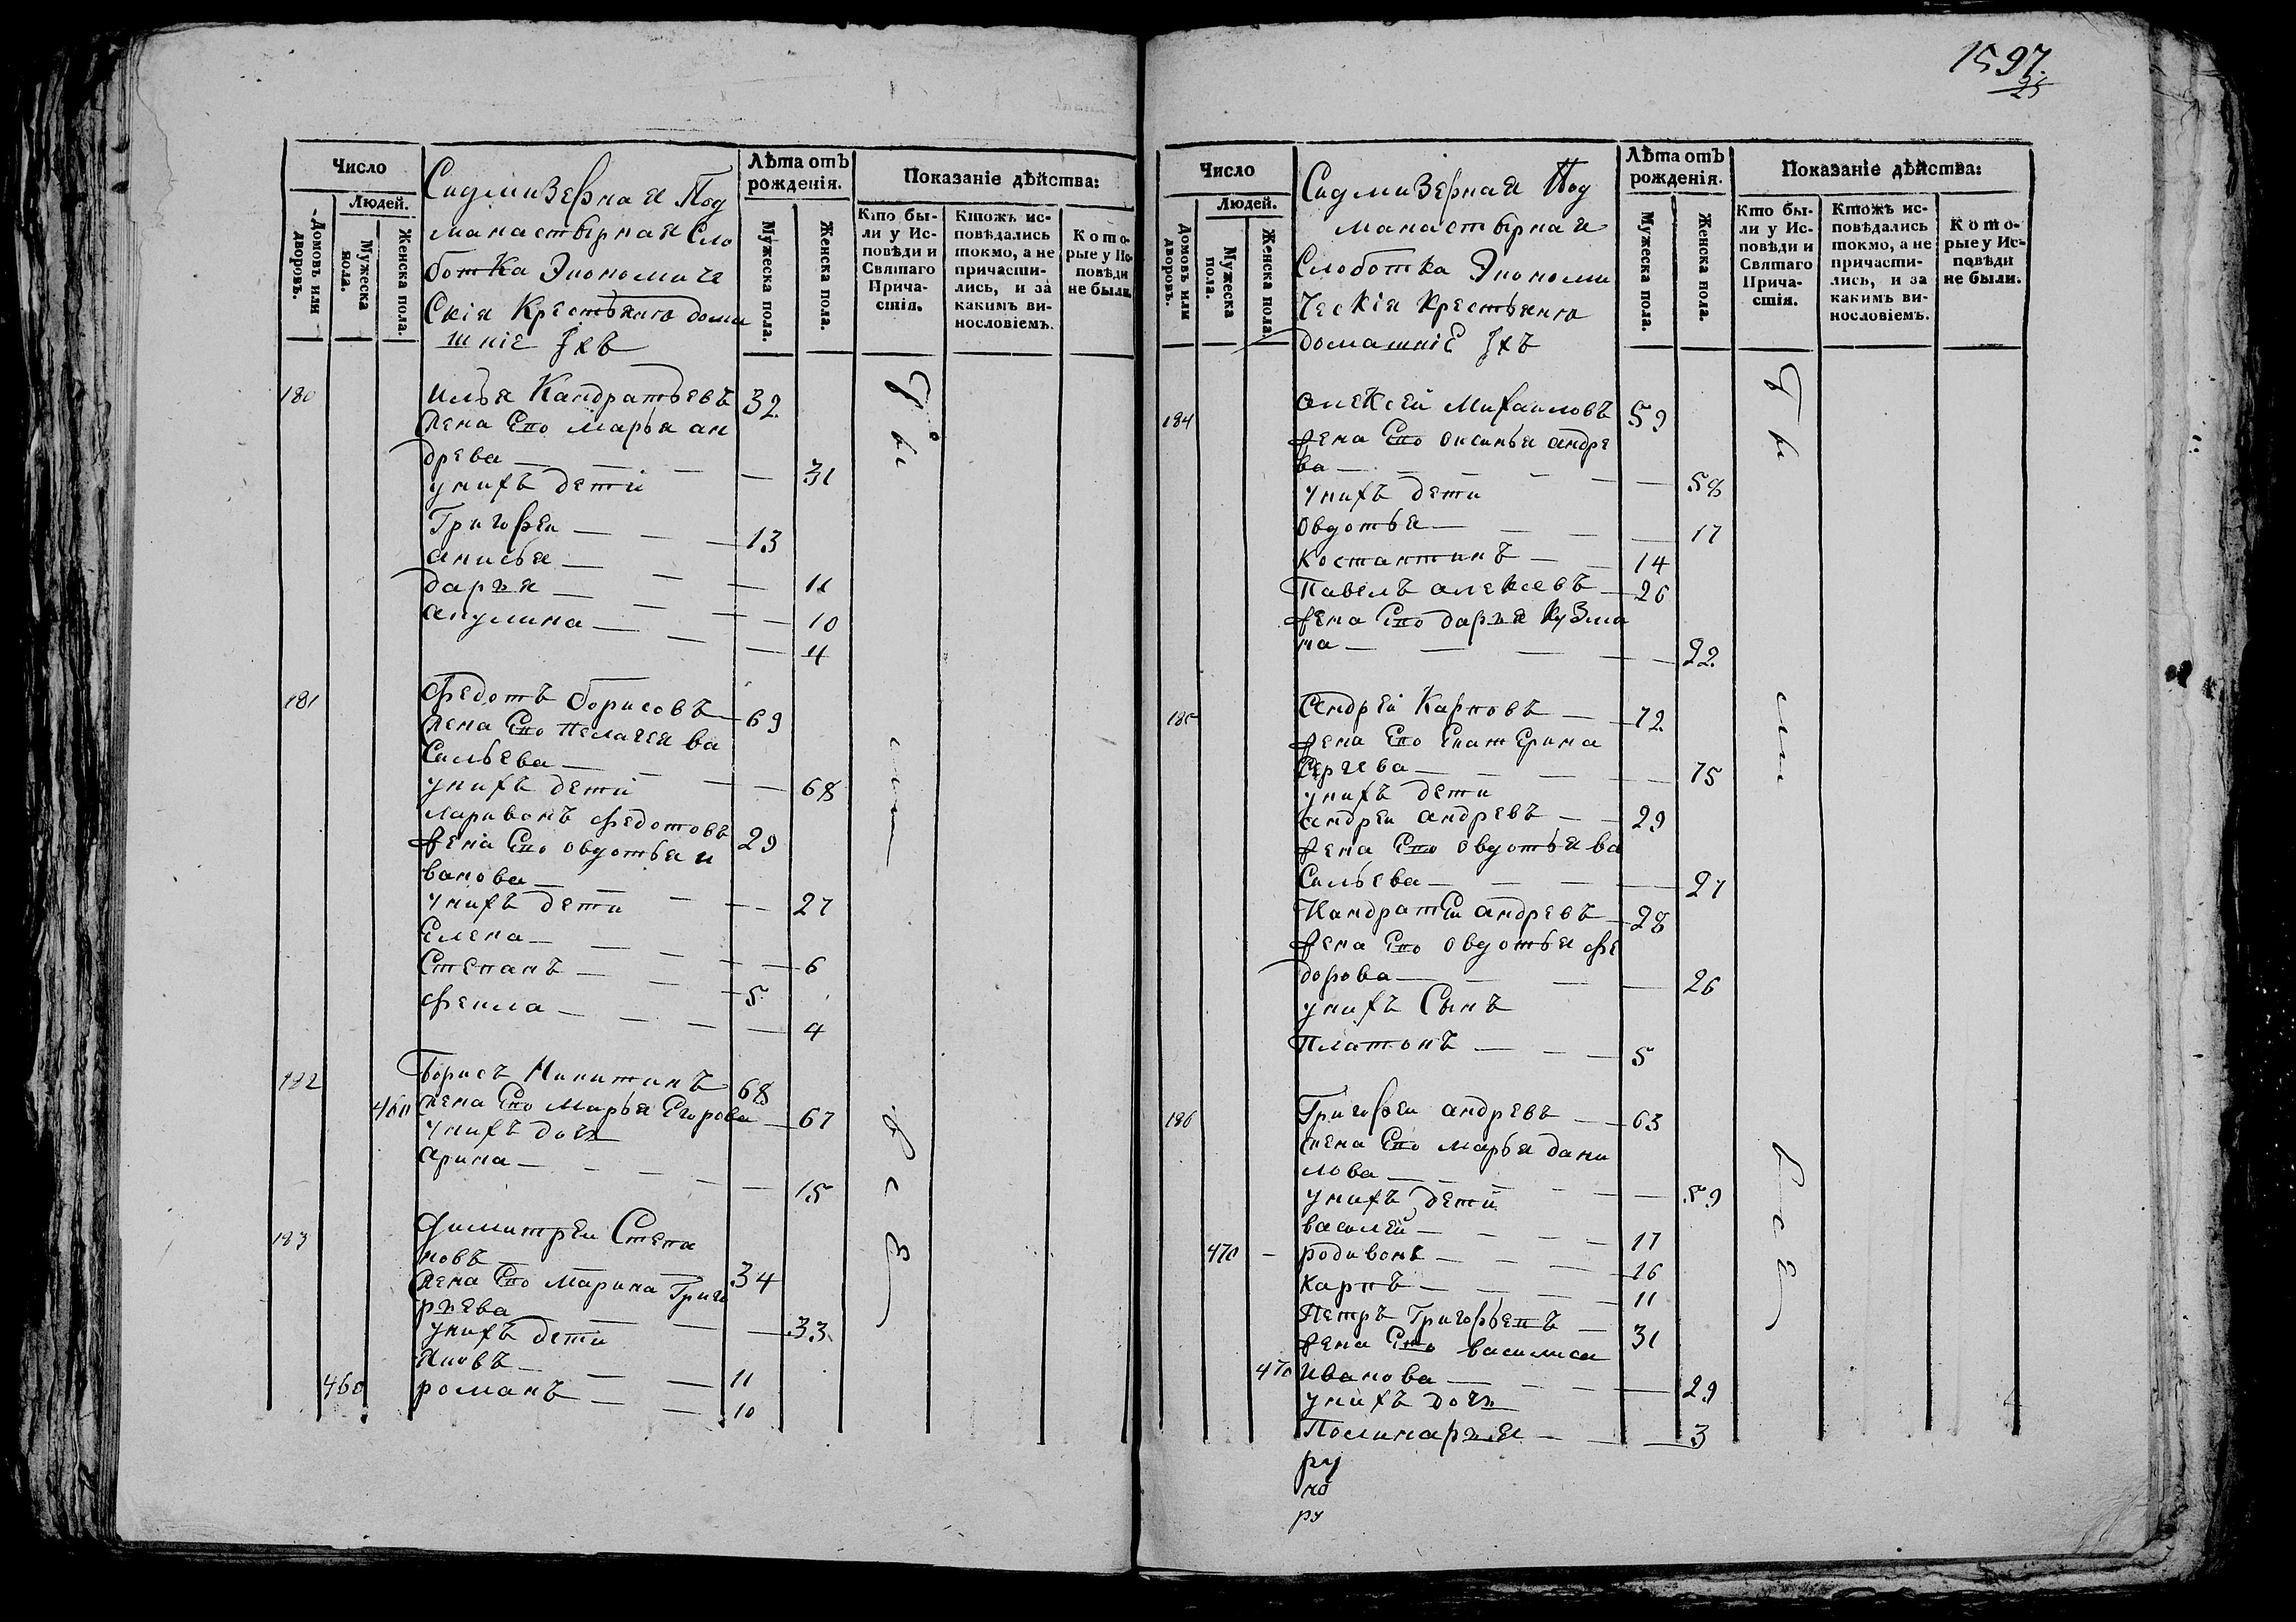 1597.
25
Число
Людей.
Домовъ или дворовъ.
Мужеска пола.
Женска пола.
Седмиезерная Под
манастырная Сло
ботка Экономиче
Скія Крестьяня дома
шніе Ихъ
Лѣта отъ
рожденія.
Мужеска пола.
Женска пола.
Показаніе дѣйства:
Кто бы-
ли у Ис-
повѣди и
Святаго
Прича-
стія.
Ктожъ ис-
повѣдались
токмо, а не
причасти-
лись, и за
какимъ ви-
нословіемъ.
Кото-
рые у Ис-
повѣди
не были.
180 илья Кандратьевъ 32
жена Ево марья ан
древа 31
унихъ дети
Григореи 13
анисья 11
дарья 10
акулина 4
181 Федотъ борисовъ 69
жена Ево пелагея ва
Сильева 68
унихъ дети
ларивонъ Федотовъ 29
жена Ево овдотья и
ванова 27
унихъ дети
Елена 6
Степанъ 5
Фекла 4
182 борисъ Никитинъ 68
460 жена Ево Марья Егорова 67
унихъ дочь
арина 15
183 Димитреи Степа
новъ 34
жена Ево Марина Григо
рьева 33
унихъ дети
Яковъ 11
460 романъ 10
Число
Людей.
Домовъ или дворовъ.
Мужеска пола.
Женска пола.
Седмиезерная Под
манастырная
Слоботка Экономи
ческія Крестьяня
домашніе Ихъ
Лѣта отъ
рожденія.
Мужеска пола.
Женска пола.
Показаніе дѣйства:
Кто бы-
ли у Ис-
повѣди и
Святаго
Прича-
стія.
Ктожъ ис-
повѣдались
токмо, а не
причасти-
лись, и за
какимъ ви-
нословіемъ.
Кото-
рые у Ис-
повѣди
не были.
184 алексей Михаиловъ 59
жена Ево оксинья андре
ва 58
унихъ дети
овдотья 17
Костантинъ 14
Павелъ алексевъ 26
жена Ево дарья Кузми
на 22
185 андрей Карповъ 72
жена Ево Екатерина
Сергева 75
унихъ дети
андреи андревъ 29
жена Ево овдотья ва
Сильева 27
Кандратеи андревъ 28
жена Ево овдотья Фе
дорова 26
унихъ Сынъ
Платонъ 5
186 Григореи андревъ 63
жена Ево марья дани
лова 59
унихъ дети
василей 17
470 родивонъ 16
карпъ 11
Петръ Григорьевъ 31
жена Ево василиса
470 Иванова 29
унихъ дочь
Полинарья 3
ру
но
ру